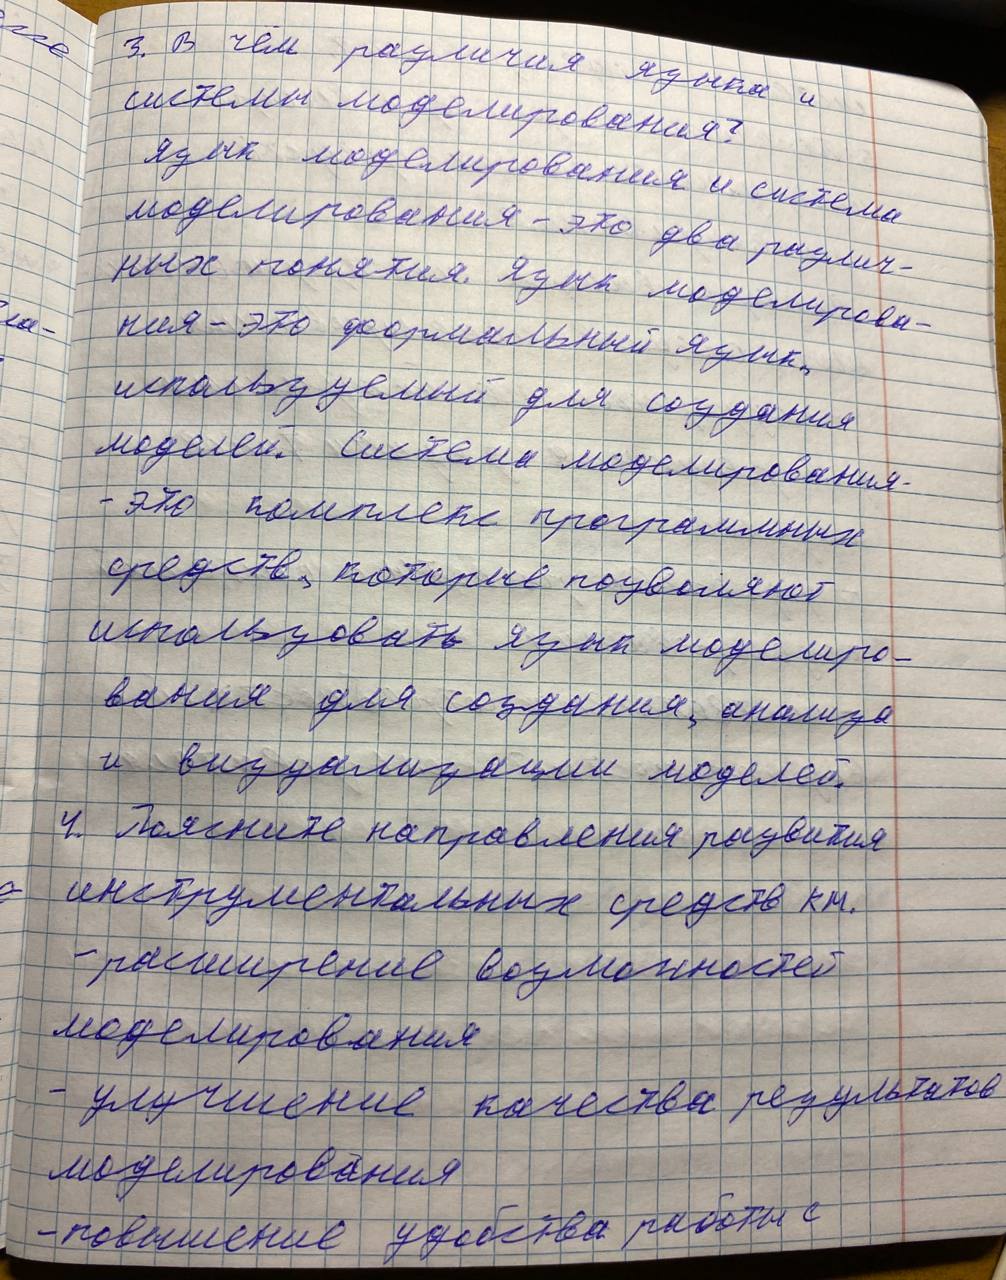 3. В чём различия языка и
системы моделирования?
Язык моделирования и система
моделирования - это два различ-
ных понятия. Язык моделирова-
ния - это формальный язык,
используемый для создания
моделей. Система моделирования-
- это комплекс программных
средств, которые позволяют
использовать язык моделиро-
вания для создания, анализа
и визуализации моделей.
4. Поясните направления развития
инструментальных средств КМ.
- расширение возможностей
моделирования
- улучшение качества результатов
моделирования
- повышение удобства работы с